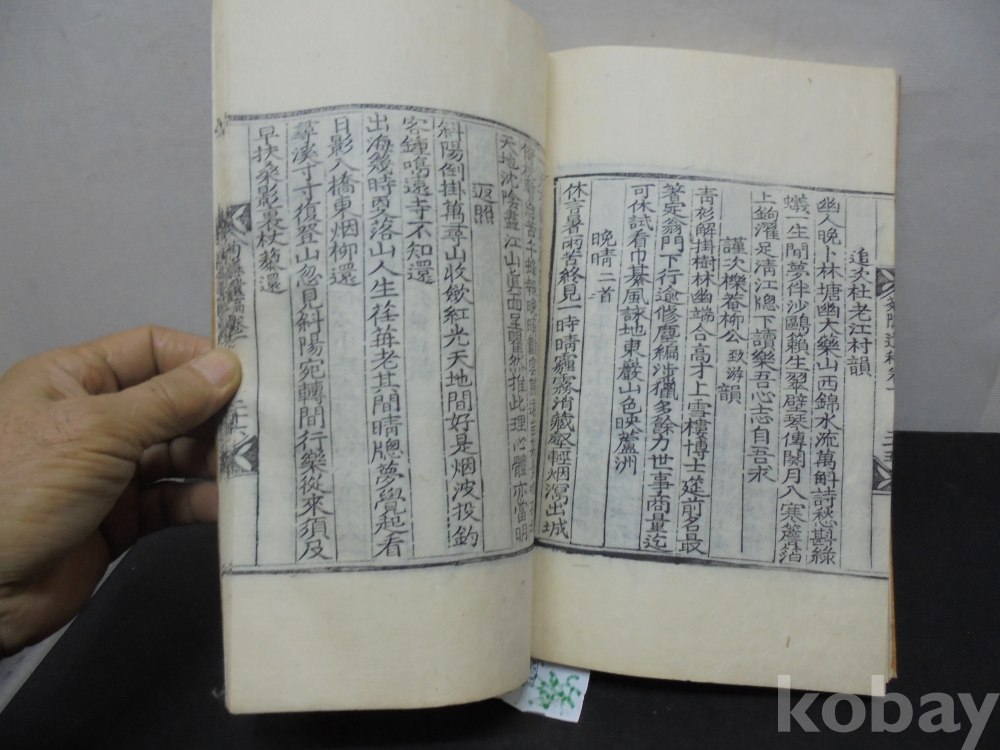 追次杜老江村韻
幽人晚卜林塘幽大藥山西錦水流萬斛詩愁斟綠
蟻一生閒夢伴沙鷗籟生翠壁琴傳閱月入寒蘆箔
上鉤濯足淸江牕下讀樂吾心志自吾求
謹次櫟菴柳公致游韻
靑衫解掛樹林幽端合高才上雪樓博士筵前名最
著定翁門下行逾修塵編涉獵多餘力世事商量迄
可休試看巾綦風詠地東巖山色映蘆洲
晚晴二首
休言暑雨苦終見一時晴霾霧消藏壑輕烟瀉出城
天地沈陰盡江山眞面呈瞿然推此理心體亦當明
返照
斜陽倒掛萬尋山收斂紅光天地間好是烟波投釣
客鍾鳴遠寺不知還
出海幾時更落山人生荏苒老其間晴牕夢覺起看
日影入橋東烟柳還
尋溪寸寸復登山忽見斜陽宛轉間行樂從來須及
早扶桑影裏杖藜還
kobay